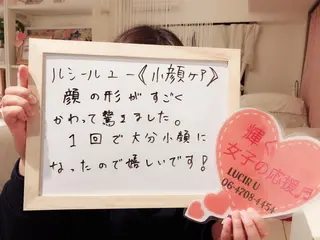 ルシールユー《小顔ケア》
顔の形がすごく
かわって驚きました。
1回で大分小顔に
なったので嬉しいです！
輝く
女子の応援♬
LUCIR U
06-4708-4454